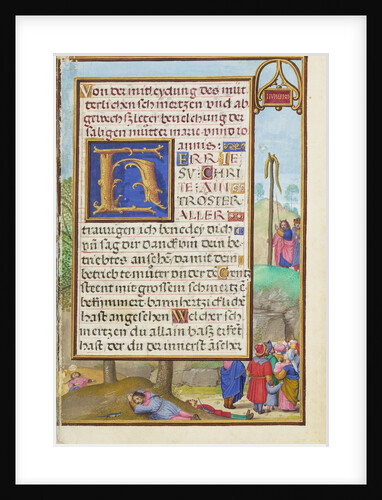 Von der mitleydung des müt
terlichen schmertzen vnd ab
gewechszleter bevelchung der
säligen mütter marie vnnd io
annis:
HERR IE
SV CHRI
TE AIN
TROSTER
ALLER
traurigen ich benedey dich
vn̄ sag dir danck vm̄ dein be
triebtes ansehē da mit dein
betriebte mūter vnder dē Creütz
steent mit grossem schmertzē
bekim̄meret barmhertzickliche
hast angesehen Welcher sch
mertzen du allain basz erkēst
hast der du der innerst ān seher